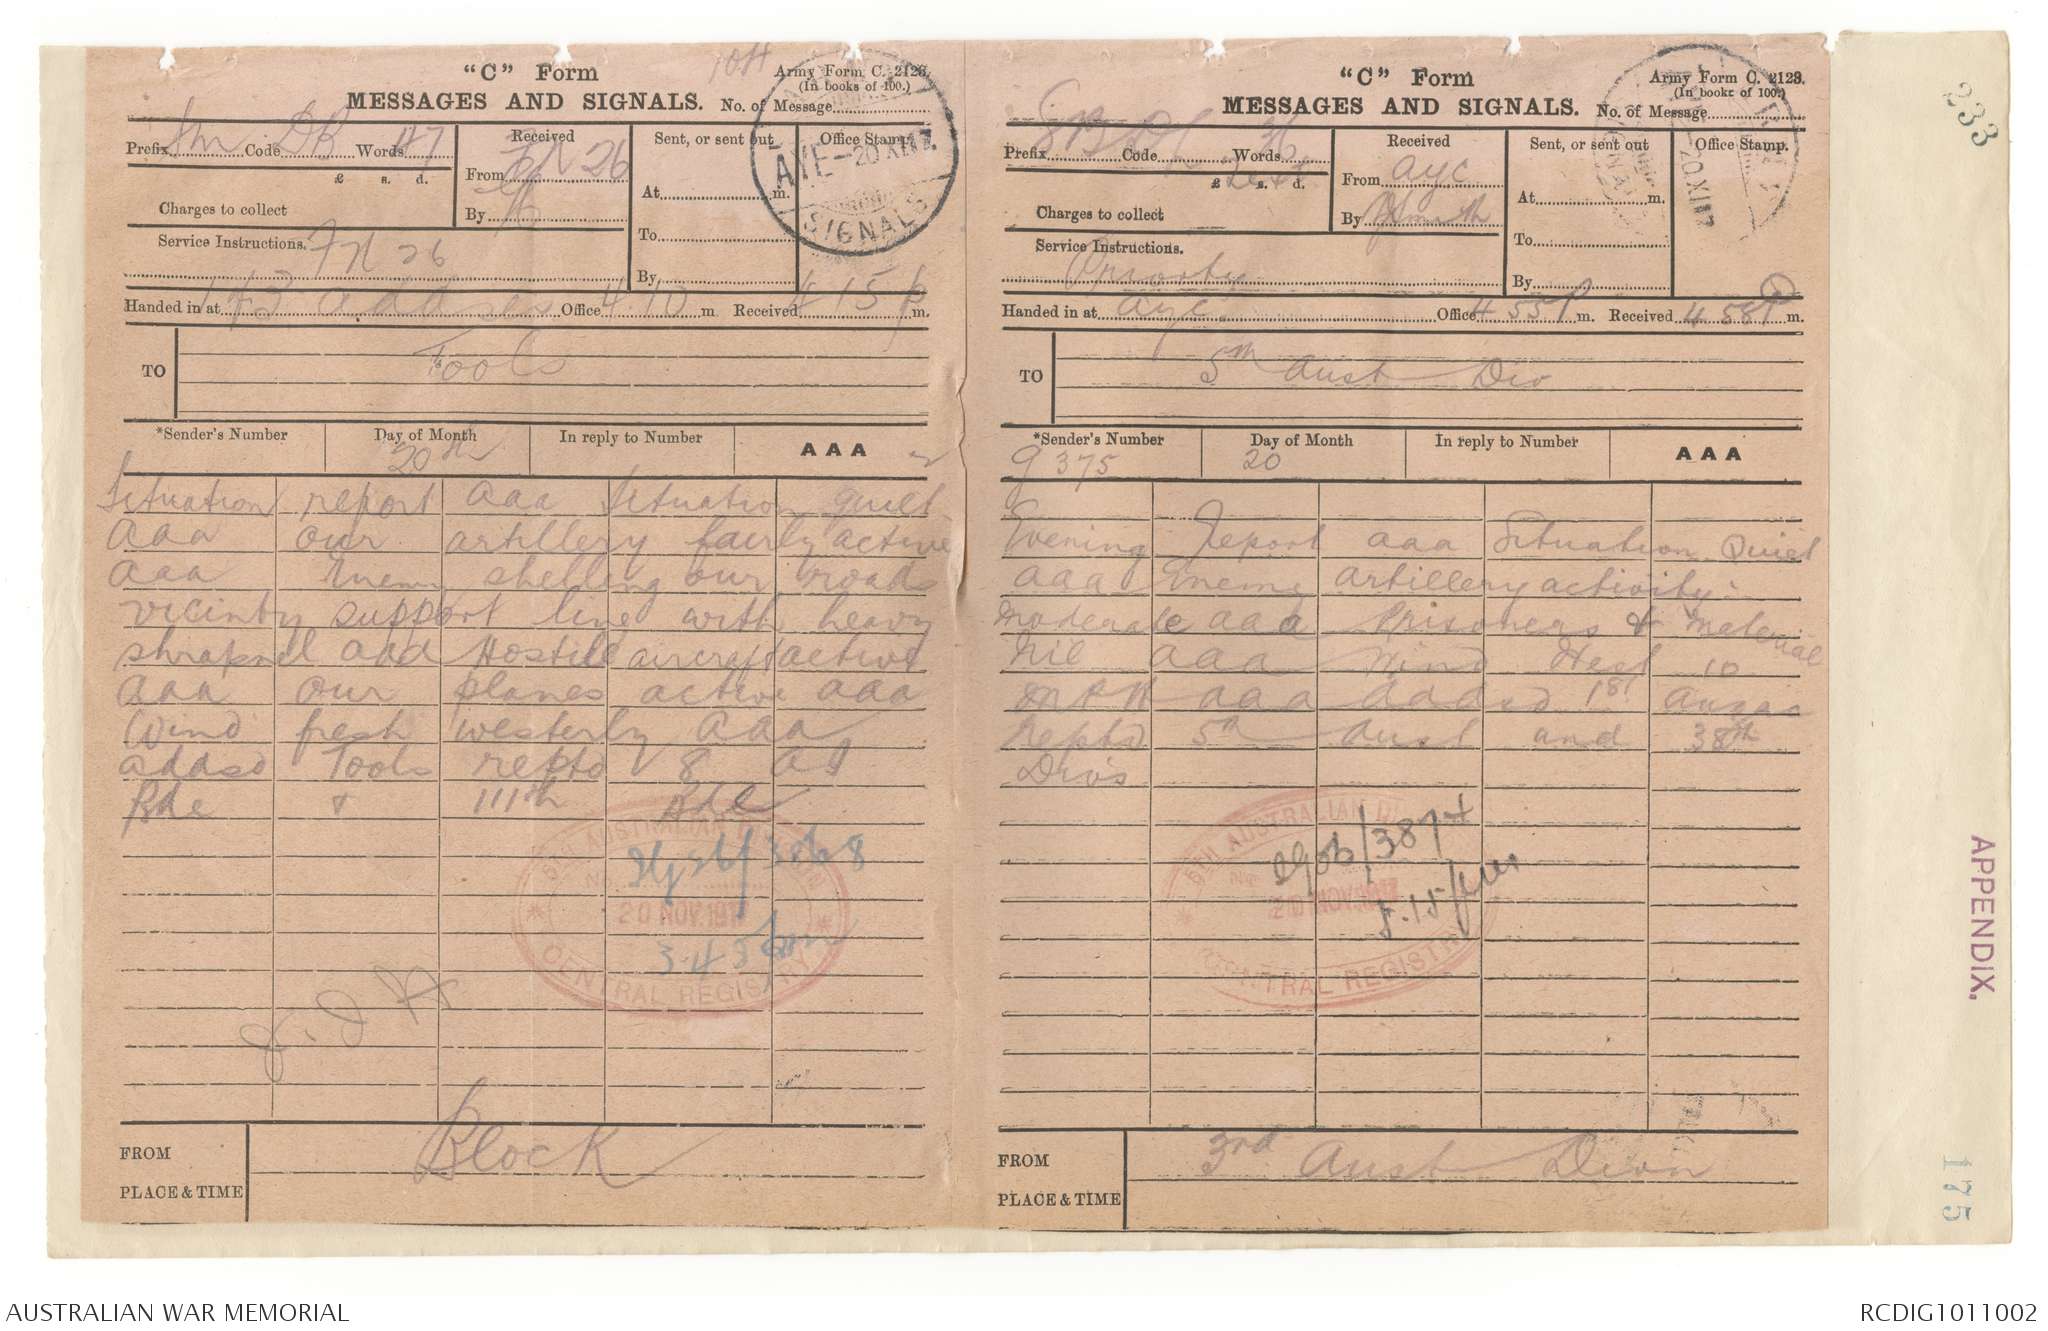 "C" Form
Army Form C. 2123.
(In books of 100.)
MESSAGES AND SIGNALS. No. of Message
Prefix Sm Code DB Words 47
Received
From FN 26
By
Sent, or sent out
At m.
To
By
Office Stamp.
AYE 20 XI 17
SIGNALS
£ s. d.
Charges to collect
Service Instructions. 26
Handed in at 143 addses Office 4.10 m. Received 4 15 p m.
TO Tools
*Sender's Number
Day of Month
20th
In reply to Number
AAA
Situation report aaa Situation quiet
aaa our artillery fairly active
aaa Enemy shelling our roads
vicinty support line with heavy
shrapnel aaa Hostile aircraft active
aaa our planes active aaa
Wind fresh westerly aaa
addsd Tools reptd 8 AI
Bde & 111th Bde
5TH AUSTRALIAN DIVISION
20 NOV. 1917
3.45 pm
CENTRAL REGISTRY
FROM Block
PLACE & TIME
"C" Form
Army Form C. 2123.
(In books of 100.)
MESSAGES AND SIGNALS. No. of Message
Prefix Code Words 36
Received
From ayc
By Smith
Sent, or sent out
At m.
To
By
Office Stamp.
20 XI 17
£ s. d.
Charges to collect
Service Instructions.
Priority
Handed in at ayc Office 4 55 P m. Received 4 58 P m.
TO 5th Aust Div
*Sender's Number
G 375
Day of Month
20
In reply to Number
AAA
Evening Report aaa Situation Quiet
aaa Enemy artillery activity
moderate aaa Prisoners & Material
Nil aaa Wind West 10
M P H aaa addsd 1st Anzac
reptd 5th Aust and 38th
Divs
5TH AUSTRALIAN DIVISION
20 NOV. 1917
CENTRAL REGISTRY
FROM 3rd Aust Divn
PLACE & TIME
233
APPENDIX.
175
AUSTRALIAN WAR MEMORIAL
RCDIG1011002